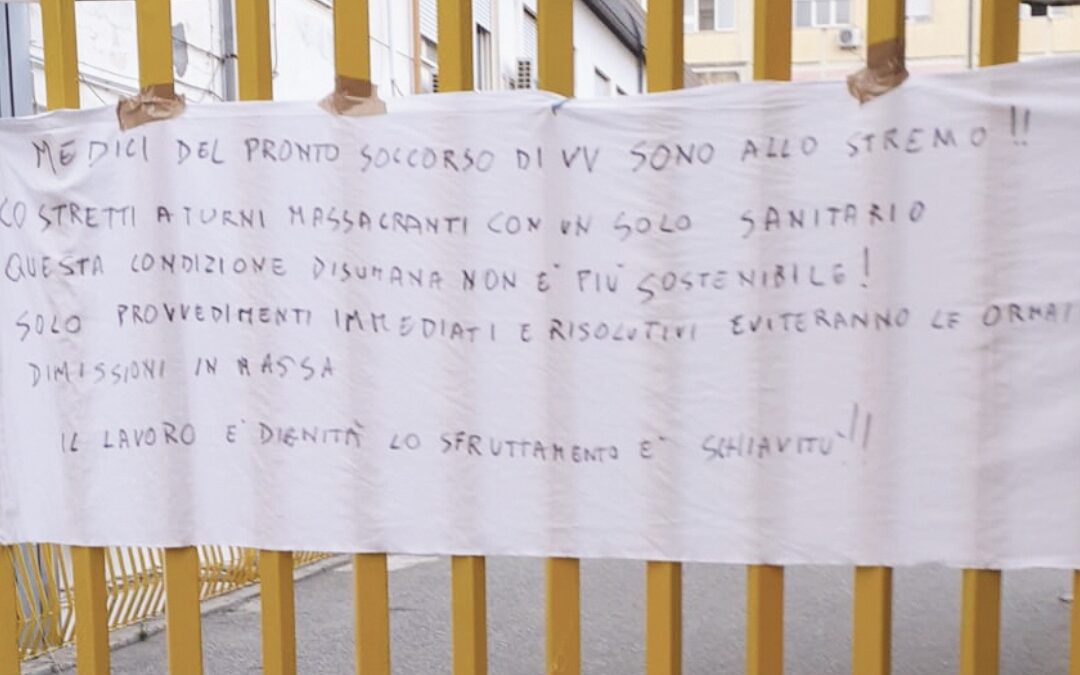 MEDICI DEL PRONTO SOCCORSO DI VV SONO ALLO STREMO!!
COSTRETTI A TURNI MASSACRANTI CON UN SOLO SANITARIO
QUESTA CONDIZIONE DISUMANA NON E' PIU' SOSTENIBILE!
SOLO PROVVEDIMENTI IMMEDIATI E RISOLUTIVI EVITERANNO LE ORMAI
DIMISSIONI IN MASSA
IL LAVORO E' DIGNITÀ LO SFRUTTAMENTO E' SCHIAVITU'!!